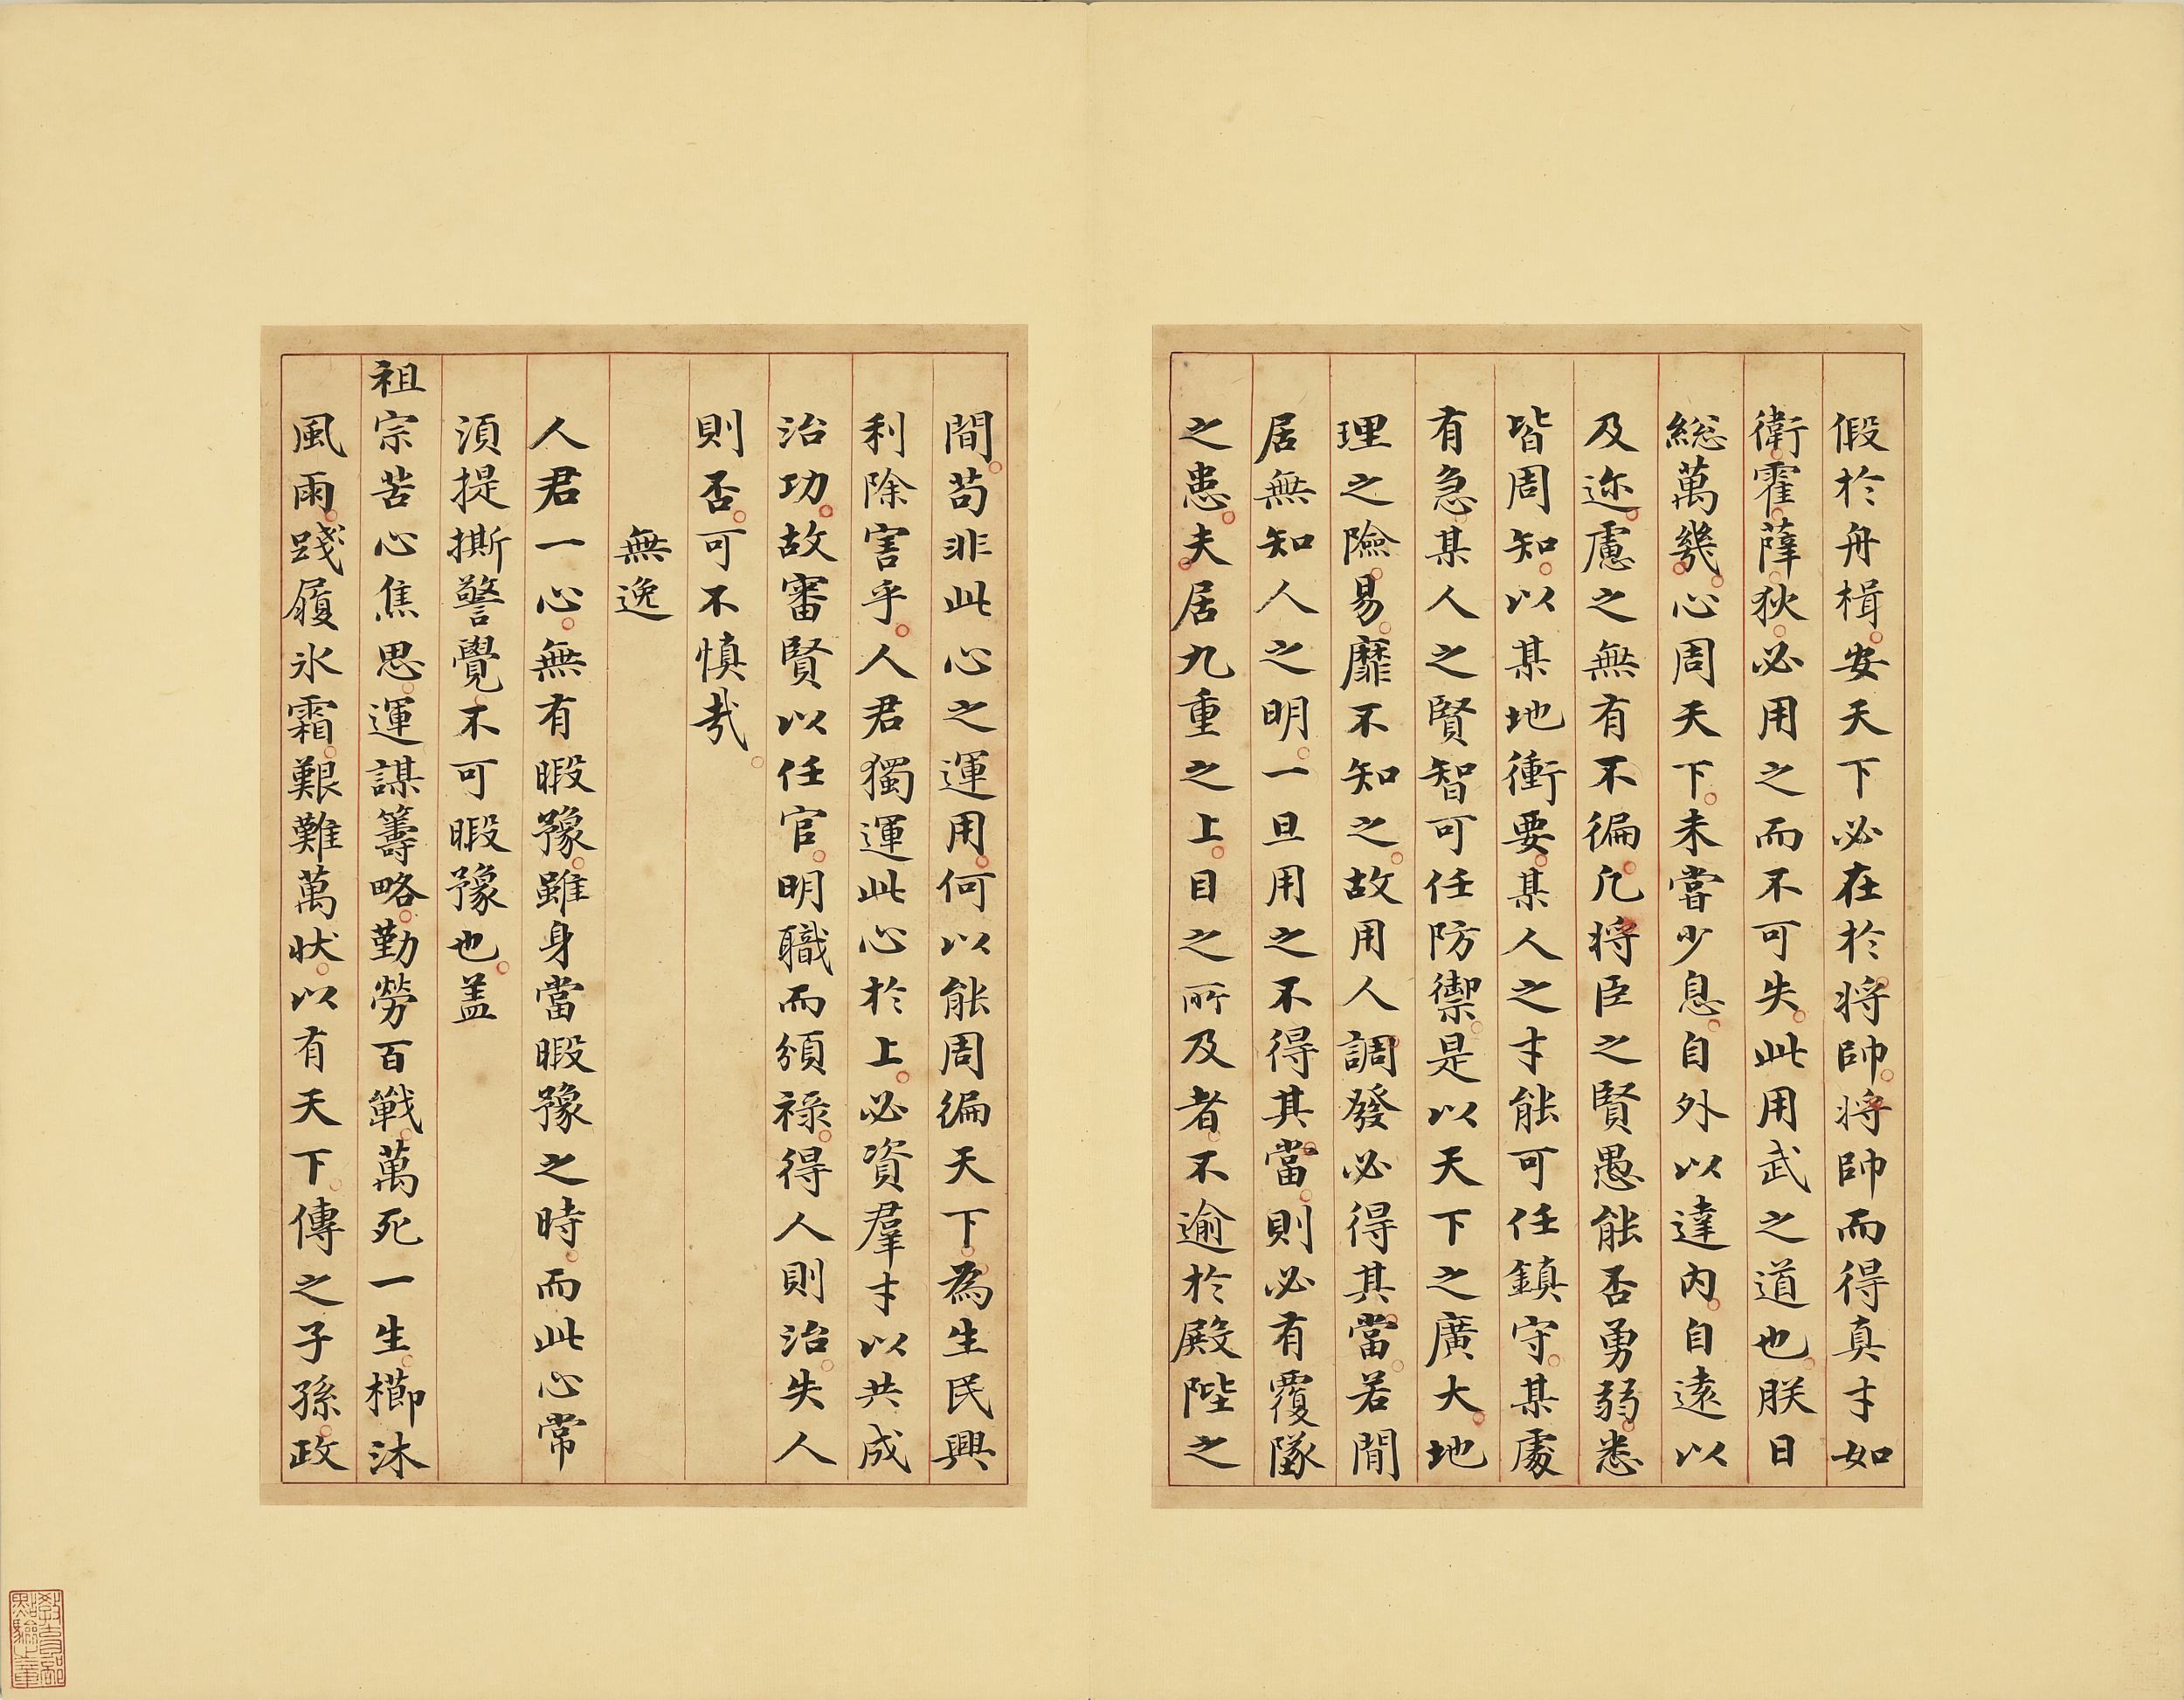 假於舟楫安天下必在於將帥將帥而得真才如
衛霍薛狄必用之而不可失此用武之道也朕日
総萬幾心周天下未嘗少息自外以達內自遠以
及迩慮之無有不徧凡將臣之賢愚能否勇弱悉
皆周知以某地衝要某人之才能可任鎮守某處
有急某人之賢智可任防禦是以天下之廣大地
理之險易靡不知之故用人調發必得其當若閒
居無知人之明一旦用之不得其當則必有覆墜
之患夫居九重之上目之所及者不逾於殿陛之
間苟非此心之運用何以能周徧天下為生民興
利除害乎人君獨運此心於上必資羣才以共成
治功故審賢以任官明職而頒祿得人則治失人
則否可不慎哉
無逸
人君一心無有暇豫雖身當暇豫之時而此心常
須提撕警覺不可暇豫也盖
祖宗苦心焦思運謀籌略勤勞百戰萬死一生櫛沐
風雨踐履氷霜艱難萬狀以有天下傳之子孫政
教育部點驗之章